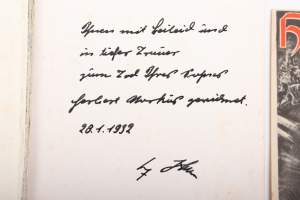 Ihnen mit Beileid und
in tiefer Trauer
zum Tod Ihres Sohnes
Herbert Norkus gewidmet.
28.1.1932
H